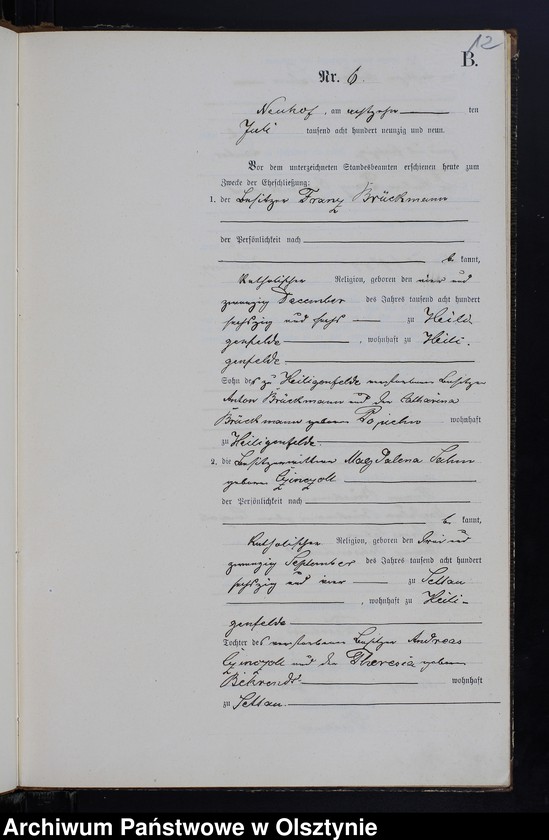 12
B.
Nr. 6.
Neuhof, am achtzehn ten
Juli tausend acht hundert neunzig und neun.
Vor dem unterzeichneten Standesbeamten erschienen heute zum
Zwecke der Eheschließung:
1. der Besitzer Franz Brückmann
der Persönlichkeit nach
be kannt,
katholischer Religion, geboren den vier und
zwanzig December des Jahres tausend acht hundert
sechszig und sechs zu Heili
genfelde, wohnhaft zu Heili-
genfelde
Sohn des zu Heiligenfelde verstorbenen Besitzer
Anton Brückmann und der Catharina
Brückmann geborene wohnhaft
zu Heiligenfelde.
2. die Besitzerwittwe Magdalena Sahm
geborene
der Persönlichkeit nach
be kannt,
katholischer Religion, geboren den drei und
zwanzig September des Jahres tausend acht hundert
sechszig und vier zu Settau
, wohnhaft zu Heili-
genfelde
Tochter des verstorbenen Besitzer Andreas
und der Theresia geborene
Behrendt wohnhaft
zu Settau.
Archiwum Państwowe w Olsztynie